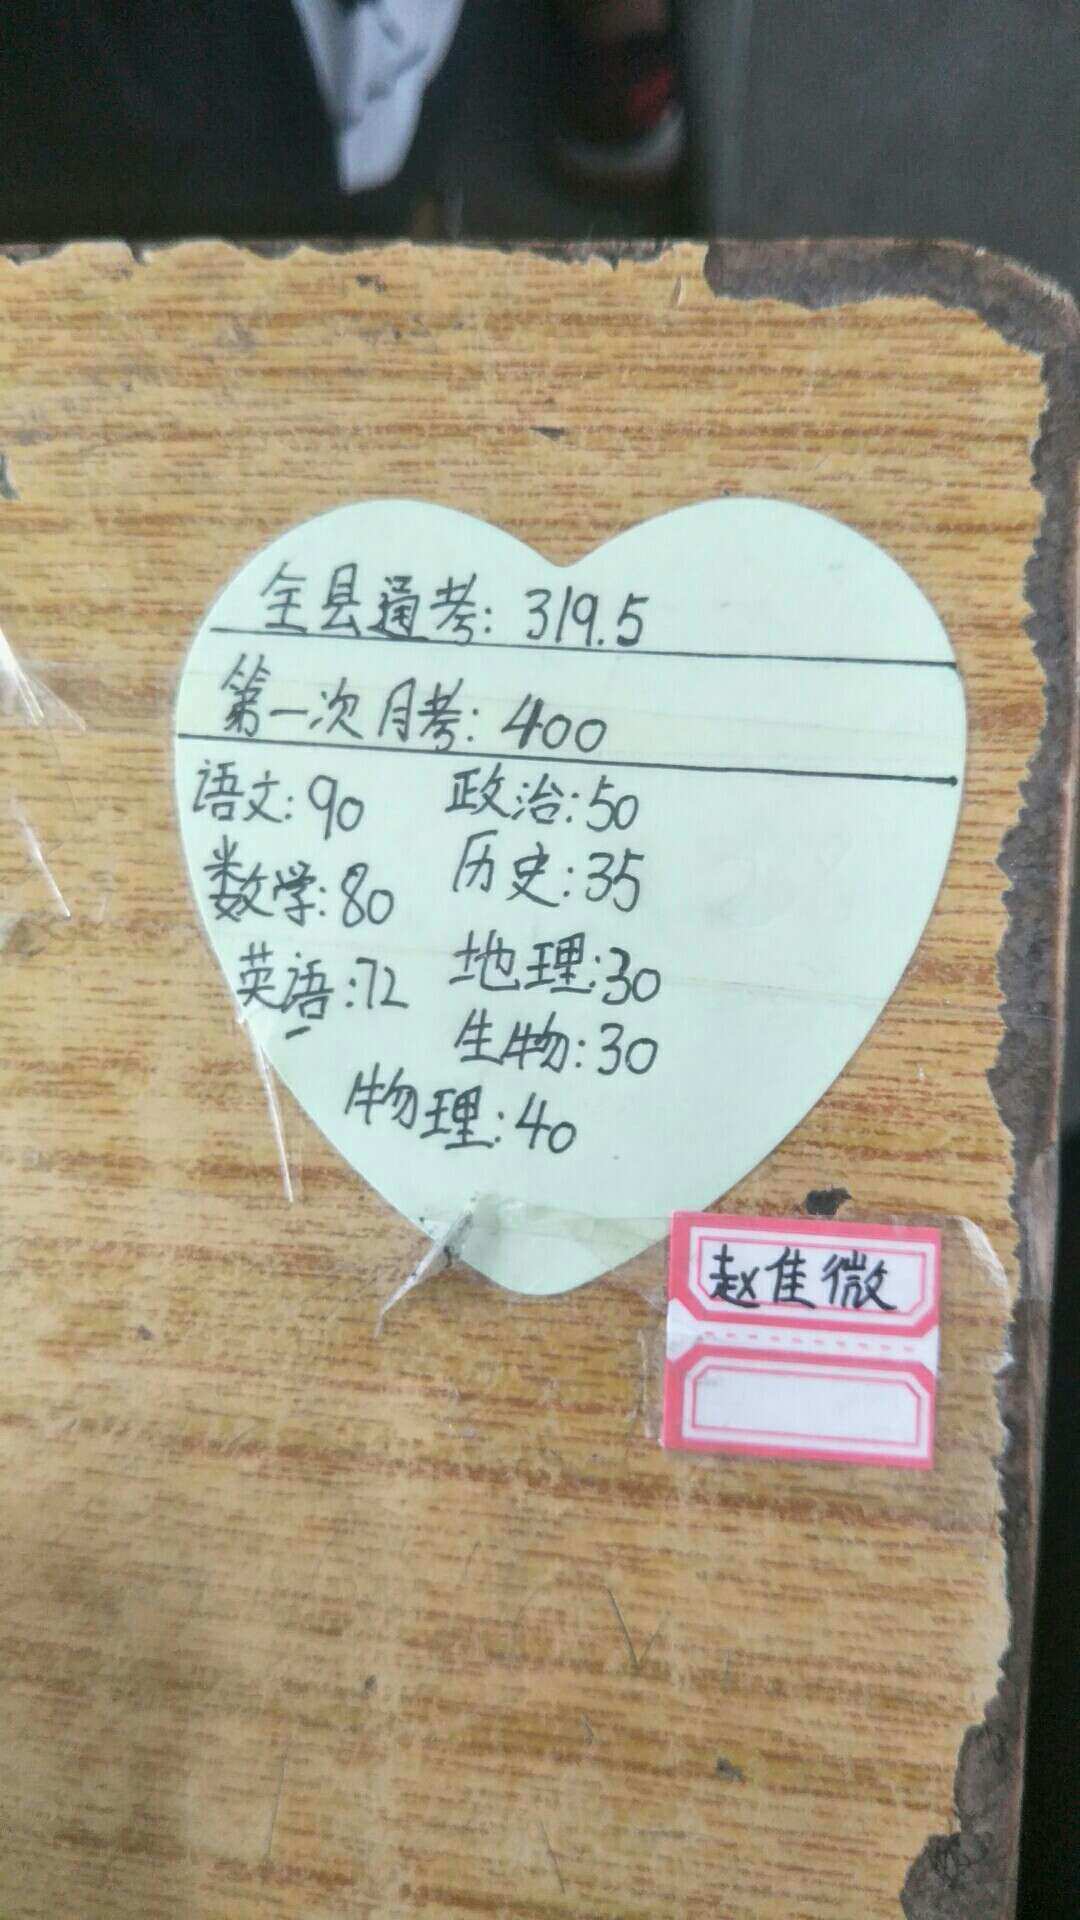 全县通考: 319.5
第一次月考: 400
语文: 90 政治: 50
数学: 80 历史: 35
英语: 72 地理: 30
生物: 30
物理: 40
赵佳微